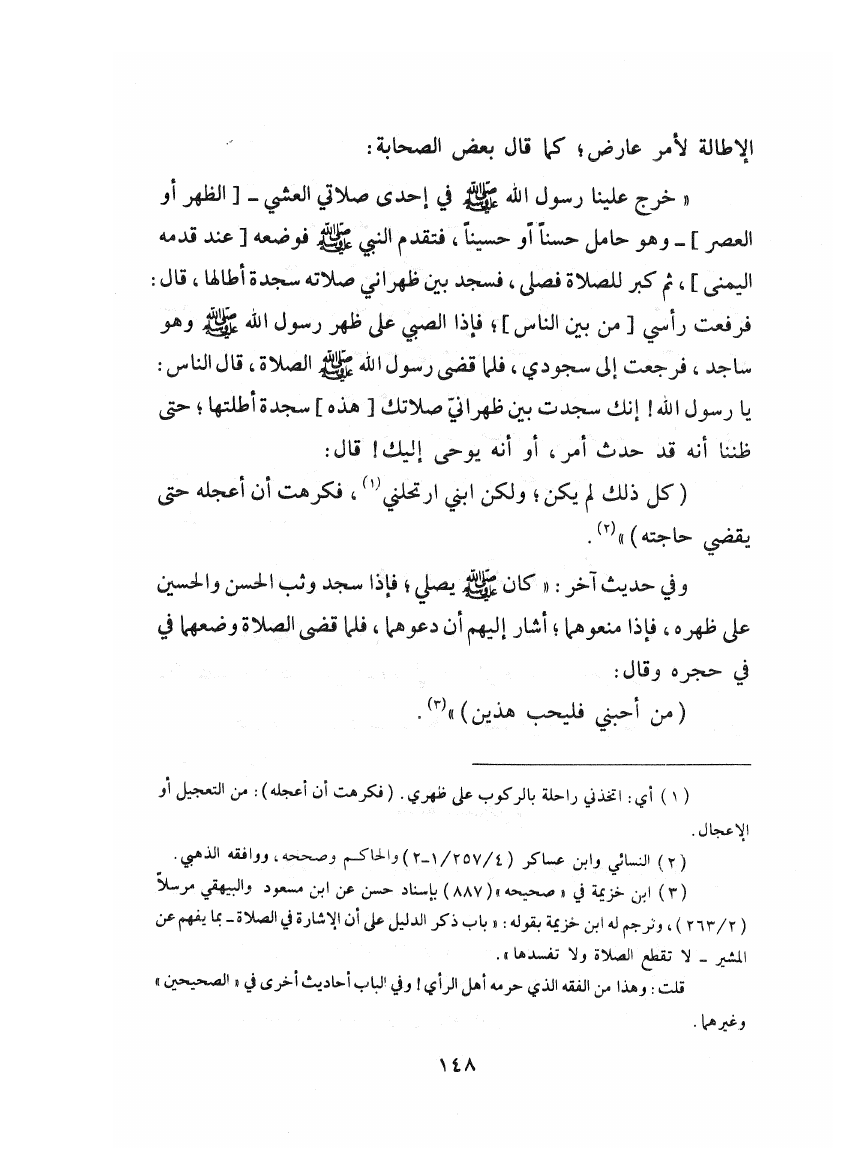 الإطالة لأمر عارض؛ كما قال بعض الصحابة:
« خرج علينا رسول الله ﷺ في إحدى صلاتي العشي ـ [ الظهر أو
العصر ] ـ وهو حامل حسناً أو حسيناً ، فتقدم النبي ﷺ فوضعه [ عند قدمه
اليمنى ] ، ثم كبر للصلاة فصلى ، فسجد بين ظهراني صلاته سجدة أطالها ، قال :
فرفعت رأسي [ من بين الناس ] ؛ فإذا الصبي على ظهر رسول الله ﷺ وهو
ساجد ، فرجعت إلى سجودي ، فلما قضى رسول الله ﷺ الصلاة ، قال الناس :
يا رسول الله ! إنك سجدت بين ظهرانيّ صلاتك [ هذه ] سجدة أطلتها ؛ حتى
ظننا أنه قد حدث أمر ، أو أنه يوحى إليك ! قال :
( كل ذلك لم يكن ؛ ولكن ابني ارتحلني (١) ، فكرهت أن أعجله حتى
يقضي حاجته ) » (٢) .
وفي حديث آخر : « كان ﷺ يصلي ؛ فإذا سجد وثب الحسن والحسين
على ظهره ، فإذا منعوهما ؛ أشار إليهم أن دعوهما ، فلما قضى الصلاة وضعهما في
في حجره وقال :
( من أحبني فليحب هذين ) » (٣) .
( ١ ) أي : اتخذني راحلة بالركوب على ظهري . ( فكرهت أن أعجله ) : من التعجيل أو
الإعجال .
( ٢ ) النسائي وابن عساكر ( ٤/٢٥٧/١ـ٢ ) والحاكم وصححه ، ووافقه الذهبي .
( ٣ ) ابن خزيمة في « صحيحه » ( ٨٨٧ ) بإسناد حسن عن ابن مسعود والبيهقي مرسلاً
( ٢/٢٦٣ ) ، وترجم له ابن خزيمة بقوله : « باب ذكر الدليل على أن الإشارة في الصلاة ـ بما يفهم عن
المشير ـ لا تقطع الصلاة ولا تفسدها » .
قلت : وهذا من الفقه الذي حرمه أهل الرأي ! وفي الباب أحاديث أخرى في « الصحيحين »
وغيرهما .
١٤٨